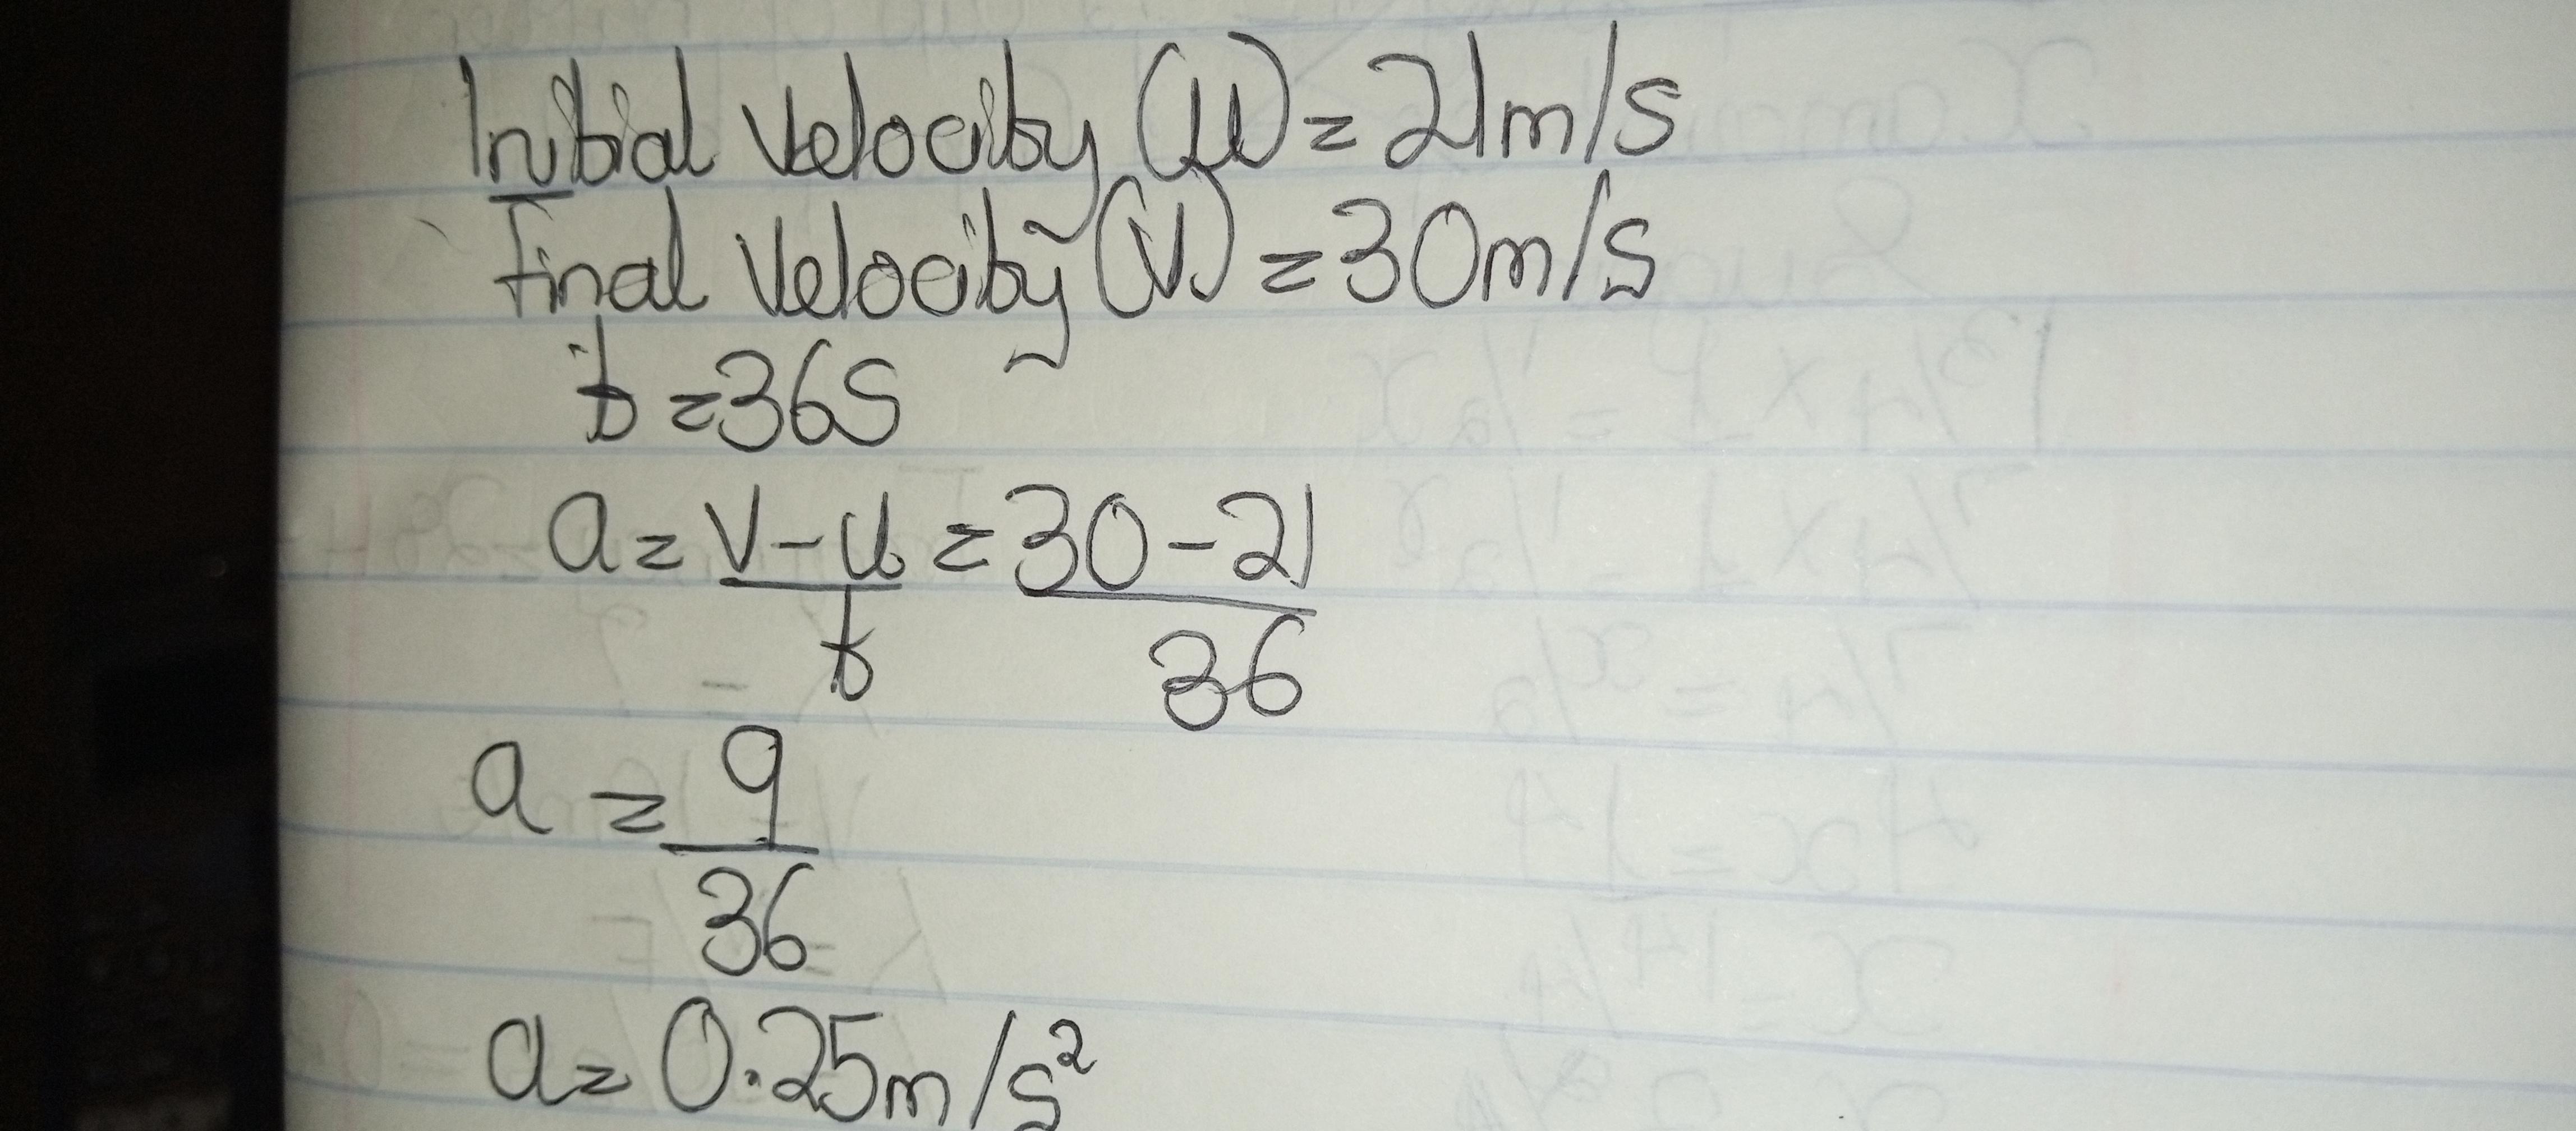 Initial velocity (u) = 21m/s
Final velocity (v) = 30m/s
t = 36s
a = v-u = 30-21
t 36
a = 9
36
a = 0.25m/s²